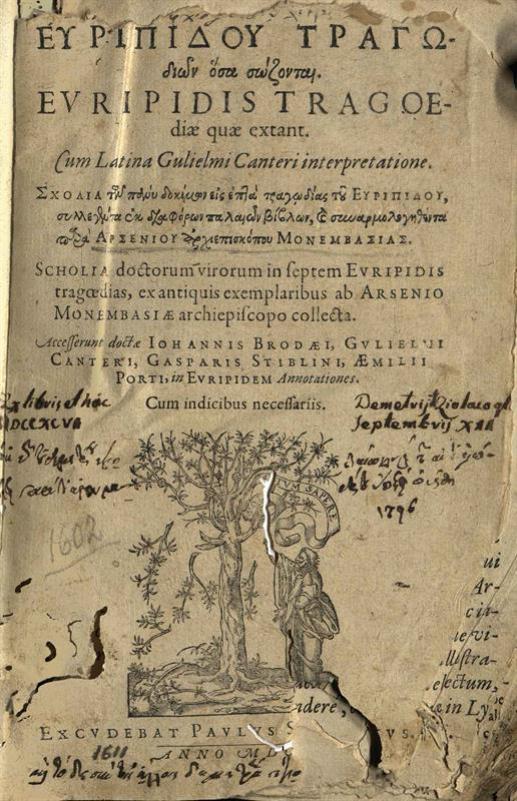 ΕΥΡΙΠΙΔΟΥ ΤΡΑΓΩ-
διῶν ὅσαι σώζονται.
EVRIPIDIS TRAGOE-
diæ quæ extant.
Cum Latina Gulielmi Canteri interpretatione.
ΣΧΟΛΙΑ τῶν πάνυ δοκίμων εἰς ἑπτὰ τραγωδίας τοῦ ΕΥΡΙΠΙΔΟΥ,
συλλεγέντα ἐκ διαφόρων παλαιῶν βίβλων, καὶ συναρμολογηθέντα
ΑΡΣΕΝΙΟΥ ἀρχιεπισκόπου ΜΟΝΕΜΒΑΣΙΑΣ.
SCHOLIA doctorum virorum in septem EVRIPIDIS
tragœdias, ex antiquis exemplaribus ab ARSENIO
MONEMBASIÆ archiepiscopo collecta.
Accesserunt doctæ IOHANNIS BRODÆI, GVLIELMI
CANTERI, GASPARIS STIBLINI, ÆMILII
PORTI, in EVRIPIDEM Annotationes.
Cum indicibus necessariis.
Septembrij
1796
1602
SAPERE
ui
Ar-
cit-
llustra-
electum,
adere,
in Ly
EXCVDEBAT PAVLVS S VS.
ANNO
1611